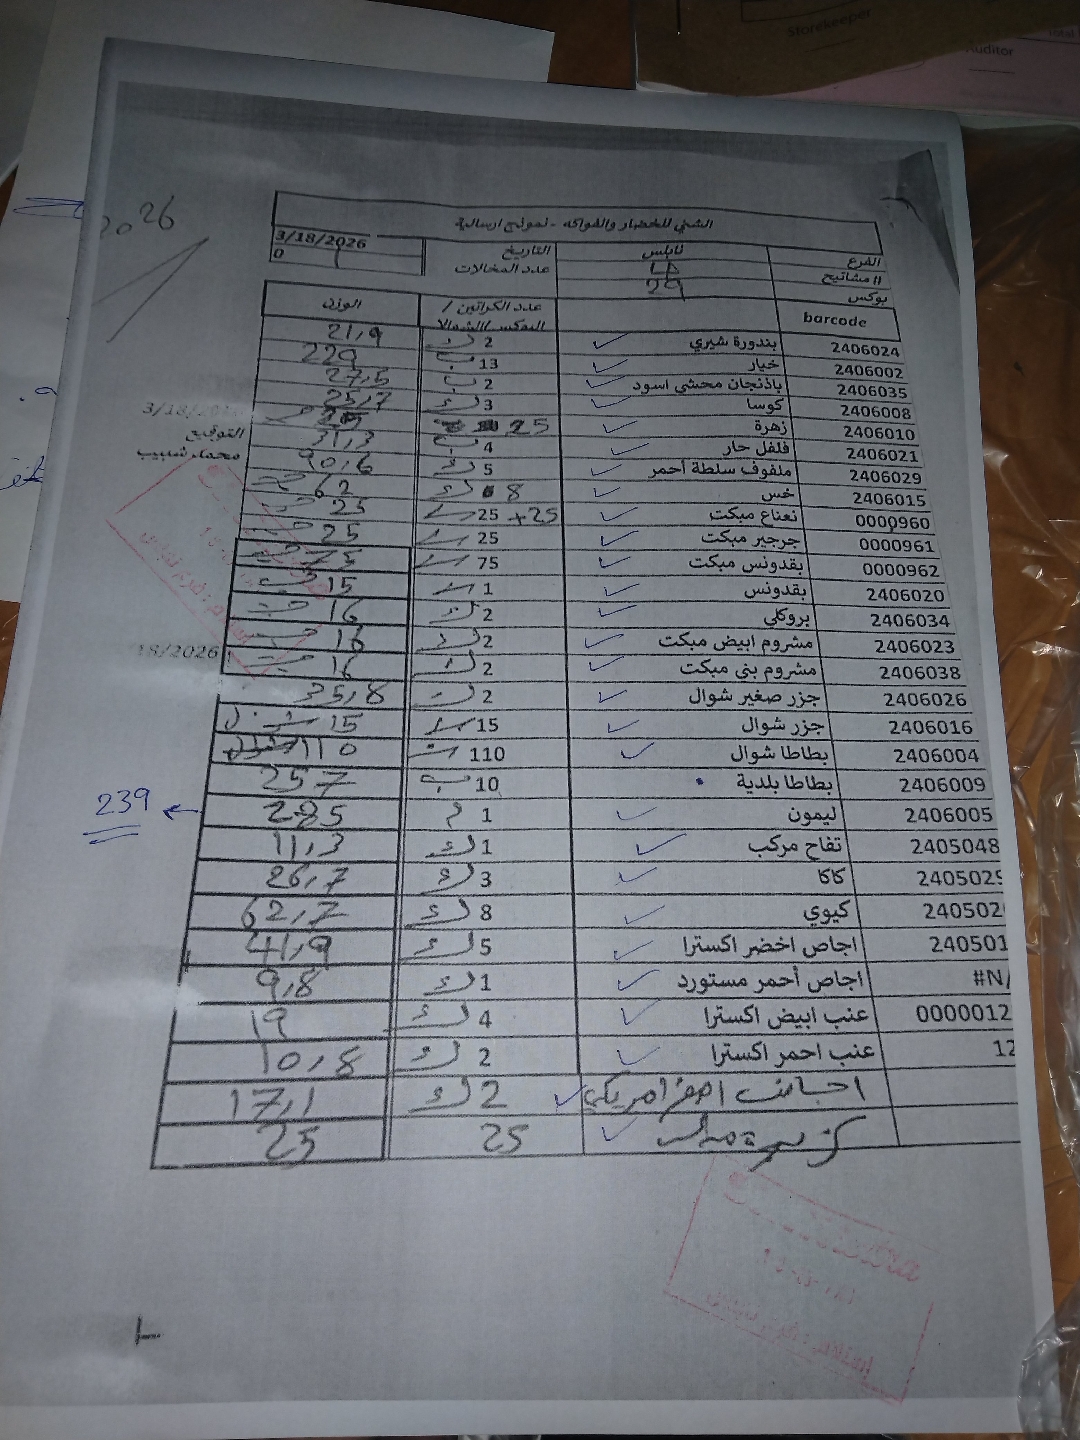 Storekeeper
Auditor
2026
الشني للخضار والفواكه - نموذج ارسالية
الفرع نابلس التاريخ 3/18/2026
# مشاتيح عدد المخالات 0
بوكس 29
barcode عدد الكراتين / البوكس/الشوالا الوزن
2406024 بندورة شيري 2 21,9
2406002 خيار 13 ب 229
2406035 باذنجان محشي اسود 2 ب 27,5
2406008 كوسا 3 ك 25,7
2406010 زهرة 25
2406021 فلفل حار 4 ب 31,3
2406029 ملفوف سلطة أحمر 5 ك 90,6
2406015 خس 8 ك 62
0000960 نعناع مبكت 25 + 25 25
0000961 جرجير مبكت 25 25
0000962 بقدونس مبكت 75 75
2406020 بقدونس 1 15
2406034 بروكلي 2 ك 16
2406023 مشروم ابيض مبكت 2 ك 16
2406038 مشروم بني مبكت 2 ك 16
2406026 جزر صغير شوال 2 35,8
2406016 جزر شوال 15 15
2406004 بطاطا شوال 110 110
2406009 بطاطا بلدية 10 ب 257
2406005 ليمون 1 م 285
2405048 تفاح مركب 1 ك 11,3
240502 كاكا 3 ك 26,7
240502 كيوي 8 ك 62,7
240501 اجاص اخضر اكسترا 5 ك 41,9
#N/ اجاص أحمر مستورد 1 ك 9,8
0000012 عنب ابيض اكسترا 4 ك 19
12 عنب احمر اكسترا 2 ك 10,8
اجاص اصفر امريكي 2 ك 17,1
كزبرة 25 25
التوقيع
محمد شبيب
18/2026
239